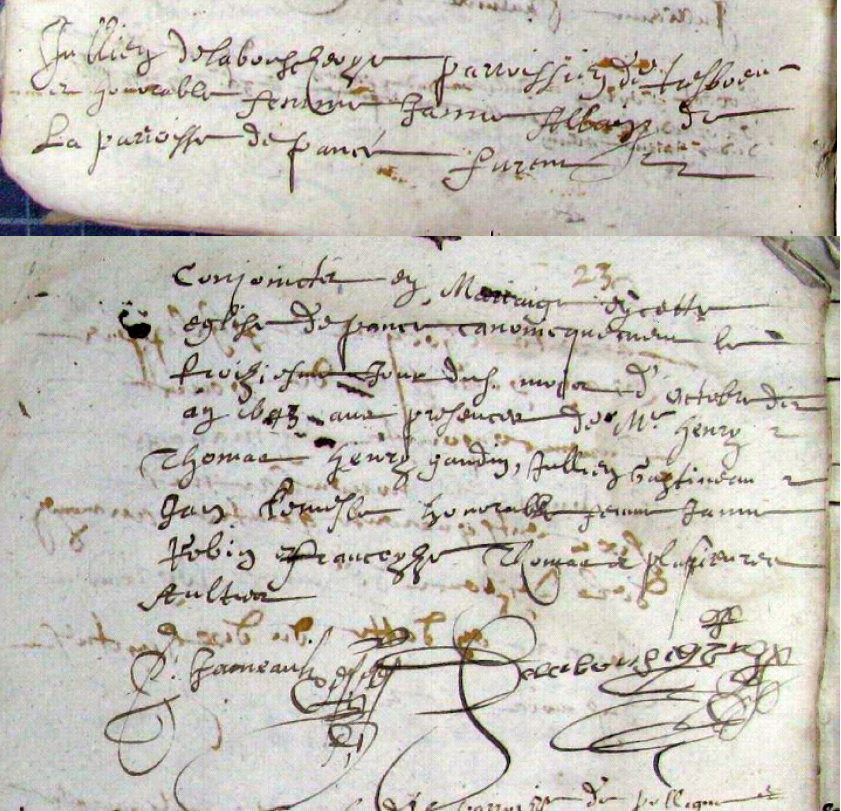 Jullien delabouscheyre parroissien de tresboeu-
et honorable femme Janne de
La parroisse de pancé furent
23
Conjoincts en Mariaige en cette
eglise de pance canonicquement le
troiziesme Jour dud. moys d'octobre dit
an 1643 aux presences des Mes Henry
Thomas Henry gaudin, Jullien gastineau
Jan honorable femme Janne
Robin Francoyse Thomas & plusieurs
Aultres
delabouscheyre
parroisse de